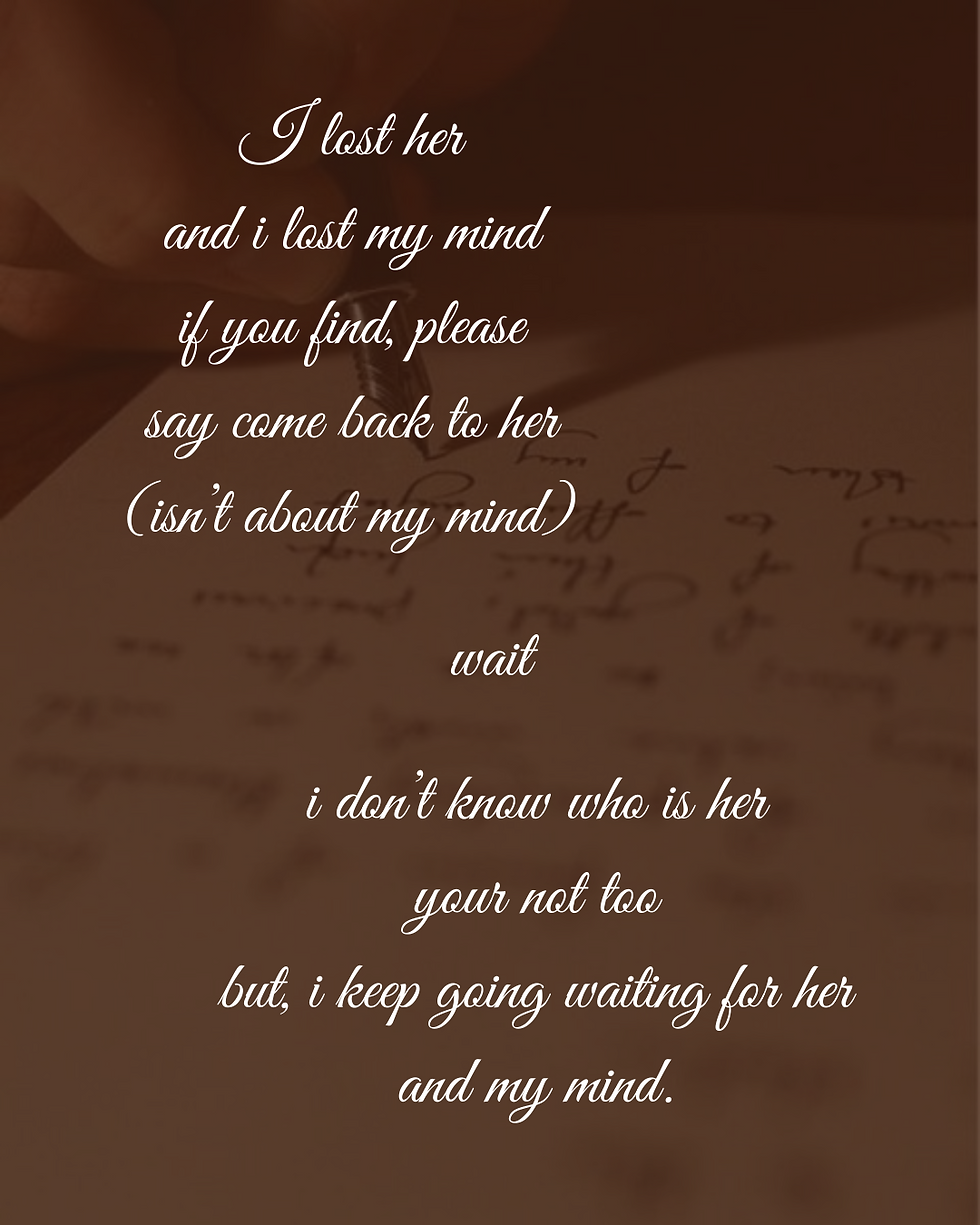 I lost her
and i lost my mind
if you find, please
say come back to her
(isn't about my mind)
wait
i don't know who is her
your not too
but, i keep going waiting for her
and my mind.